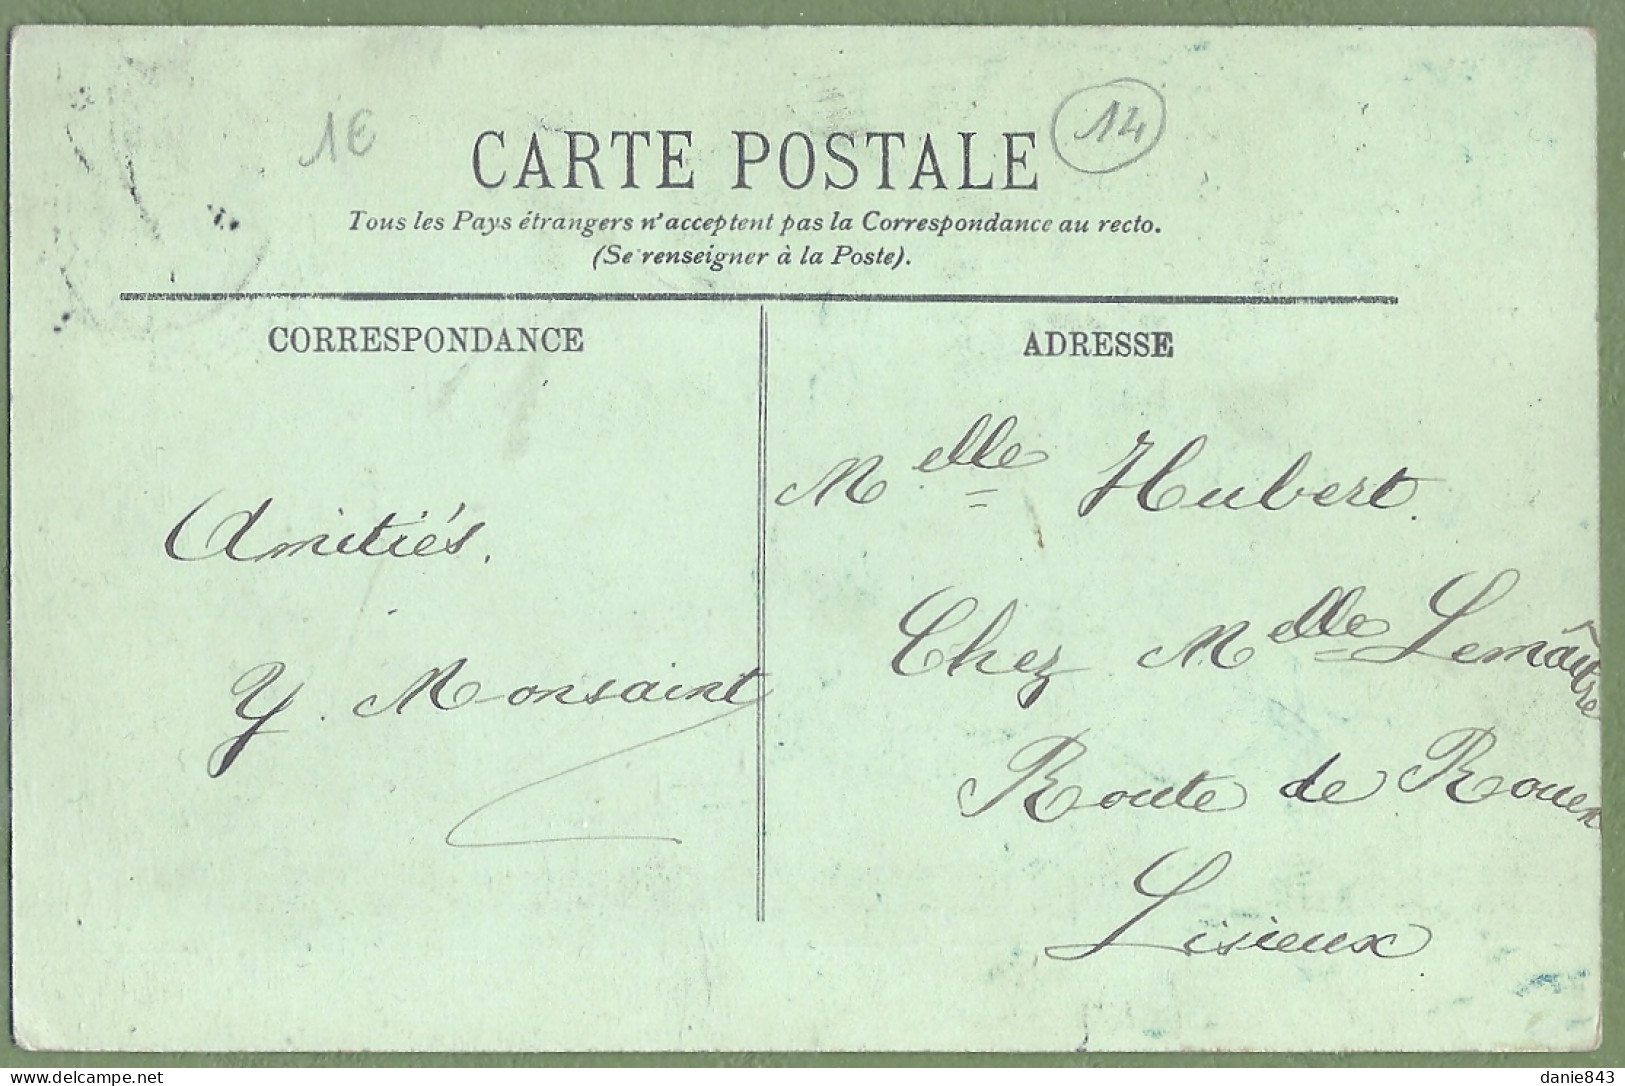 1€
CARTE POSTALE
14
Tous les Pays étrangers n'acceptent pas la Correspondance au recto.
(Se renseigner à la Poste).
CORRESPONDANCE
Amitiés.
Y. Monsaint
ADRESSE
Melle Hubert.
Chez Melle Lemâitre
Route de Rouen
Lisieux
www.delcampe.net
danie843